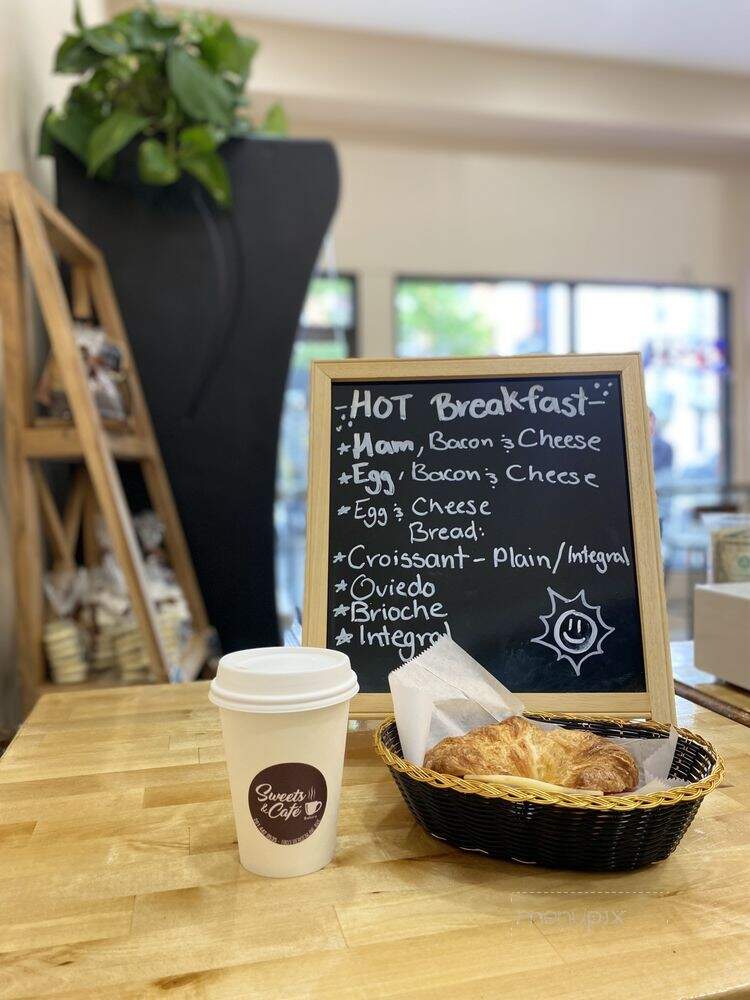 -HOT Breakfast-
*Ham, Bacon & Cheese
*Egg, Bacon & Cheese
*Egg & Cheese
Bread:
*Croissant - Plain/Integral
*Oviedo
*Brioche
*Integral
Sweets
& Café
Bakery
menupix